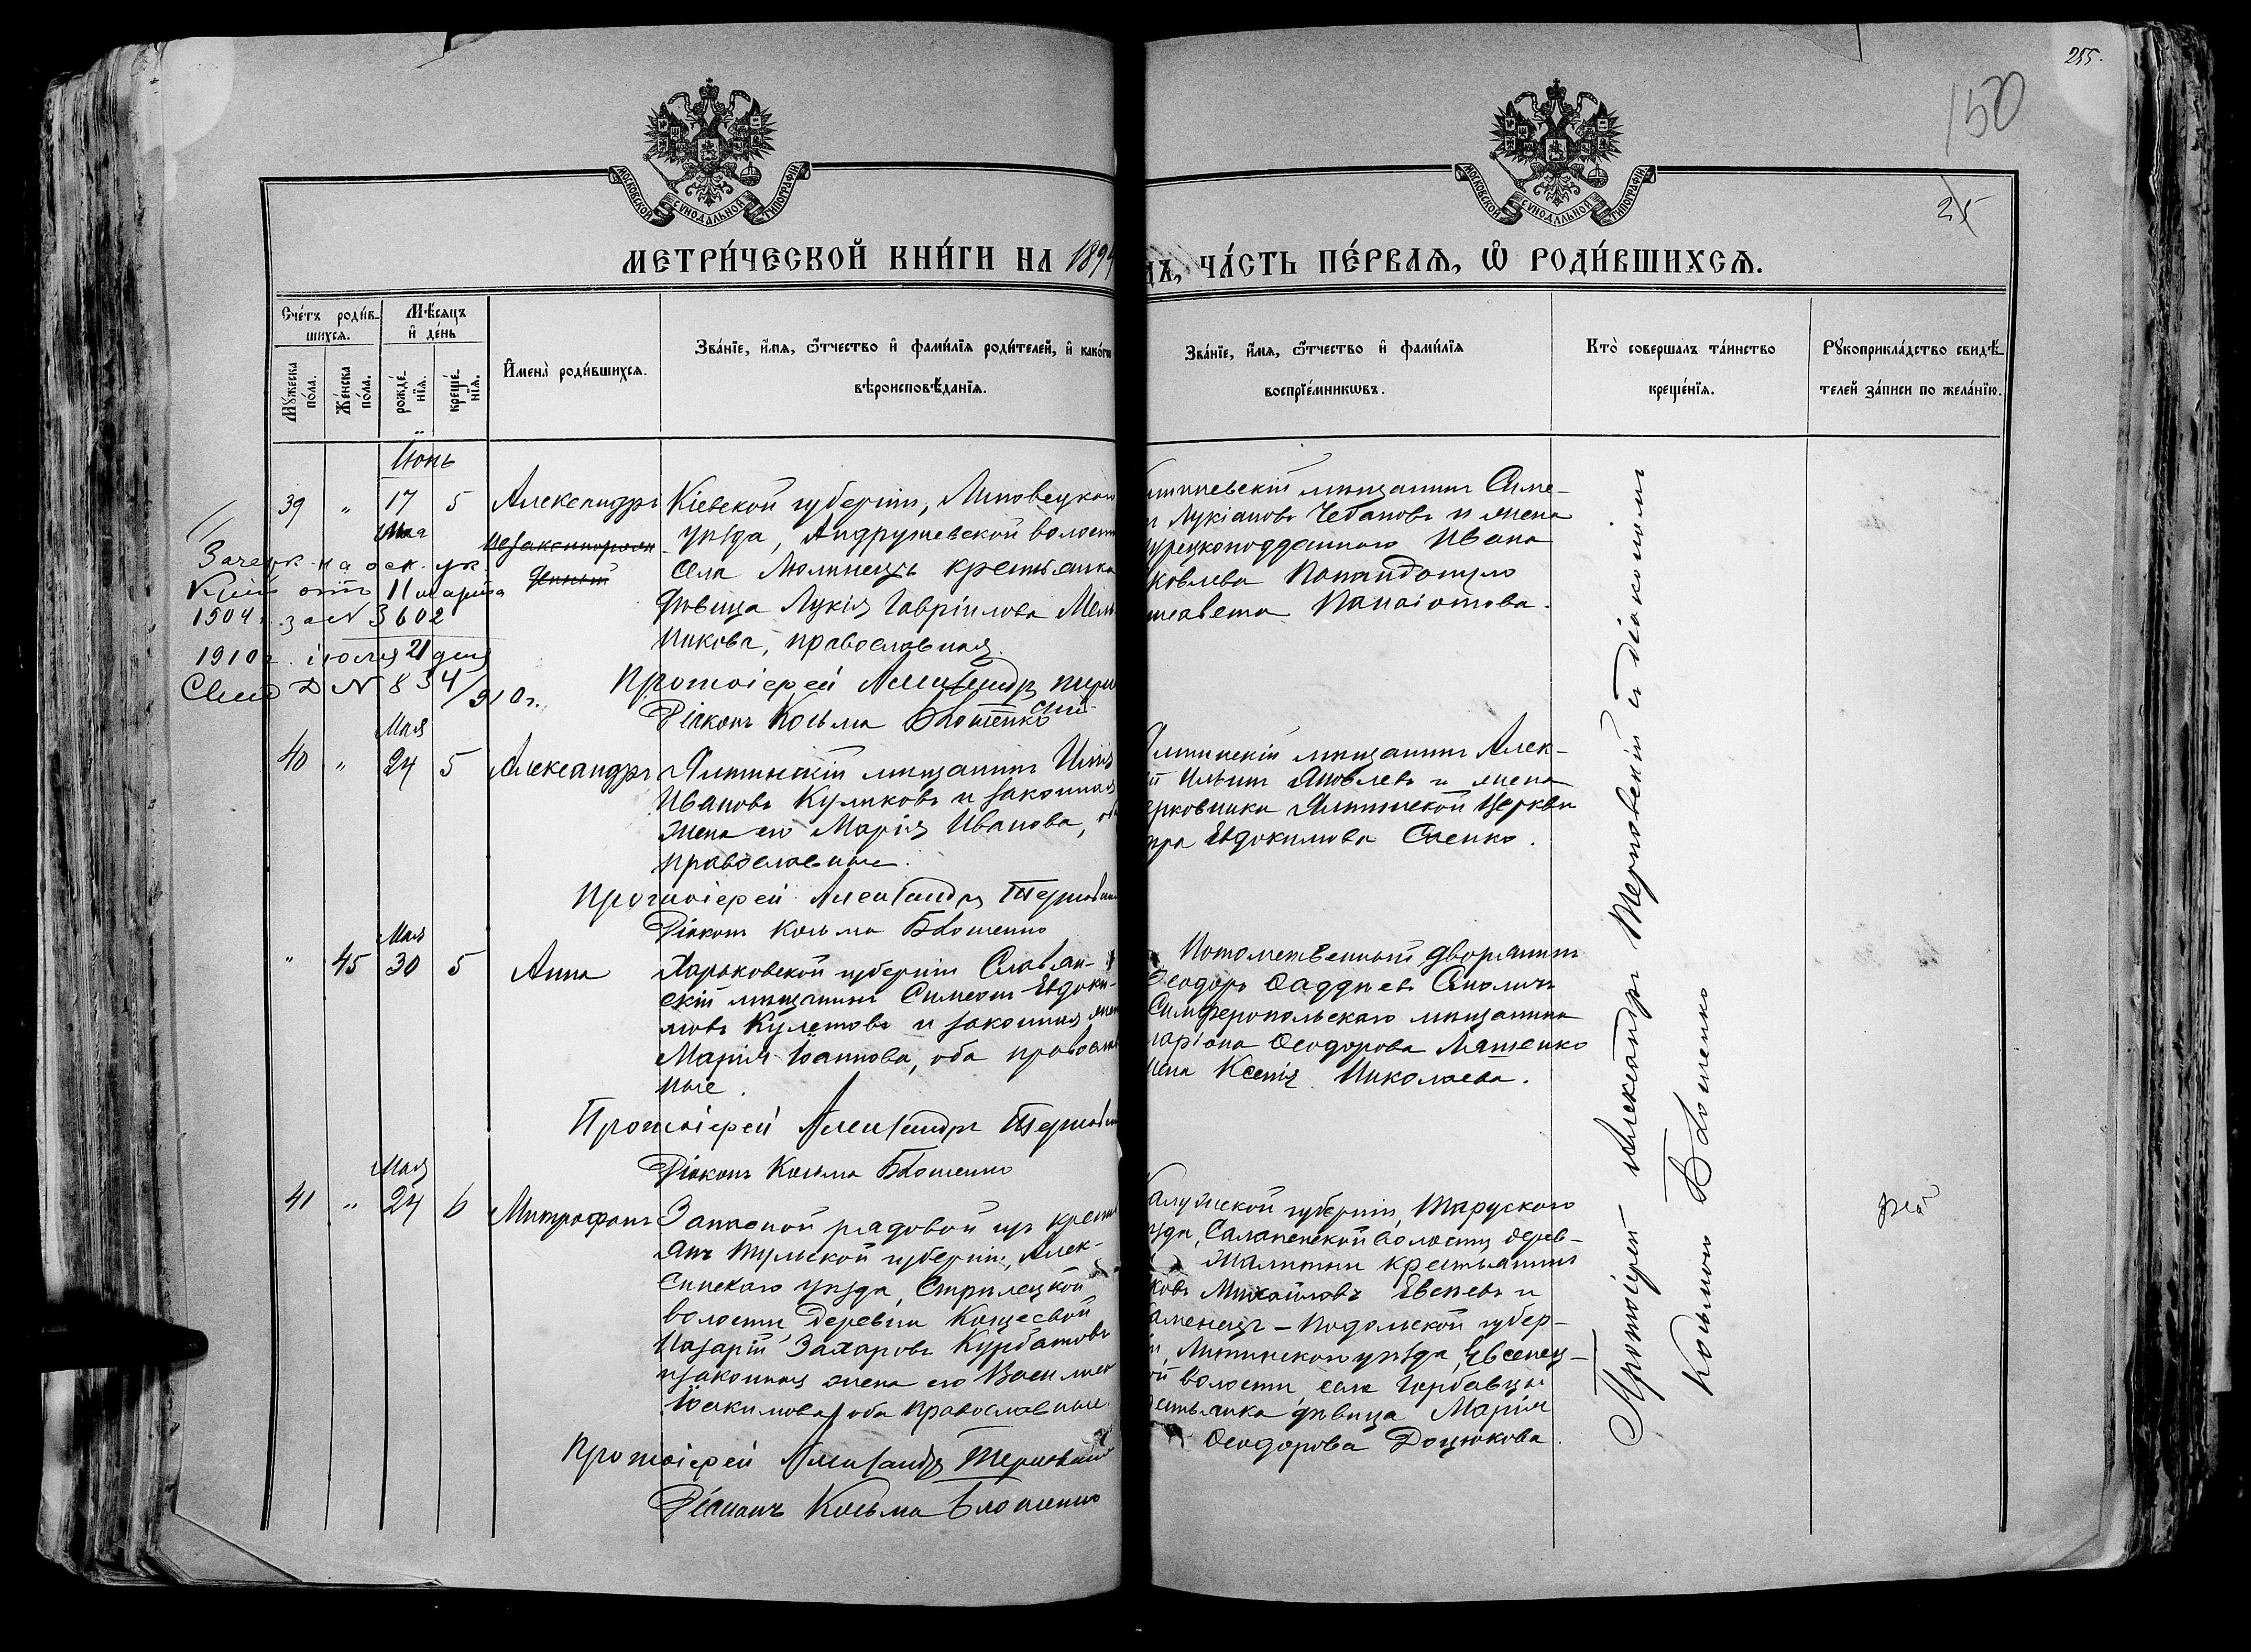 255.
150
25
МОСКОВСКОЙ СѴНОДАЛЬНОЙ ТИПОГРАФІИ
МОСКОВСКОЙ СѴНОДАЛЬНОЙ ТИПОГРАФІИ
МЕТРИ́ЧЕСКОЙ КНИ́ГИ НА 1894
ДЪ, ЧА́СТЬ ПЕ́РВАѦ, Ѡ РОДИ́ВШИХСѦ.
Сче́тъ роди́в-
шихсѧ.
Мѣ́сѧцъ
и҆ де́нь
Мꙋ́жеска по́ла.
Же́нска по́ла.
рожде́-
нїѧ.
креще́-
нїѧ.
И҆мена̀ роди́вшихсѧ.
Зва́нїе, и҆́мѧ, ѻ҆́тчество и҆ фами́лїѧ роди́телей, и҆ како́гѡ
вѣроисповѣ́данїѧ.
Зва́нїе, и҆́мѧ, ѻ҆́тчество и҆ фами́лїѧ
воспрїе́мникѡвъ.
Кто̀ соверша́лъ та́инство
креще́нїѧ.
Рꙋкоприкла́дство свидѣ́-
телей за́писи по жела́нїю.
Іюнь
39 " 17 5 Александръ
Мая
незаконнорож
денный
Кіевской губерніи, Липовецкаго
уѣзда, Андрушевской волости
села Люлинецъ крестьянка
дѣвица Лукія Гавріилова Мель
никова, православная.
Протоіерей Александръ Терно
скій
Діаконъ Косьма Блошенко
Зачерк. на осн. ук.
отъ 11 марта
1904 г. за N 3602
1910 г. іюля 21 дня
N 834/910 г.
шиневскій мѣщанинъ Симе-
нъ Лукіановъ Чебановъ и жена
урецкоподданнаго Ивана
ковлева Попандопуло
исавета Панаіотова.
Мая
40 " 24 5 Александръ
Ялтинскій мѣщанинъ Илія
Ивановъ Куликовъ и законная
жена его Марія Иванова, об
православные.
Протоіерей Александръ Терновскі
Діаконъ Косьма Блошенко
Ялтинскій мѣщанинъ Алек-
й Ильинъ Яковлевъ и жена
ерковника Ялтинской церкви
тра Евдокимова Саенко.
Мая
" 45 30 5 Анна
Харьковской губерніи Славян-
скій мѣщанинъ Симеонъ Евдоки-
мовъ Кулешовъ и законная жен
Марія Іоаннова, оба православ
ные.
Протоіерей Александръ Терновск
Діаконъ Косьма Блошенко
Потомственный дворянинъ
Ѳеодоръ Ѳаддѣевъ Смоличъ
Симферопольскаго мѣщанина
ларіона Ѳеодорова Ляшенко
жена Ксенія Николаева.
Мая
41 " 24 6 Митрофанъ
Запасной рядовой изъ кресть
янъ Тульской губерніи, Алек-
синскаго уѣзда, Стрѣлецкой
волости, деревни Кащеевой
Назарій Захаровъ Курбатовъ
и законная жена его Василиса
Іоакимова, оба православные.
Протоіерей Александръ Терновскій
Діаконъ Косьма Блошенко
Калужской губерніи, Тарускаго
ѣзда, Салапенской волости дерев-
Малютки крестьянинъ
ковъ Михайловъ Евсеевъ и
Каменецъ-Подольской губер-
и, Литинскаго уѣзда,
ой волости, села Горбавцы
рестьянка дѣвица Марія
Ѳеодорова Доцюкова.
Протоіерей Александръ Терновскій и діакономъ
Косьмою Блошенко